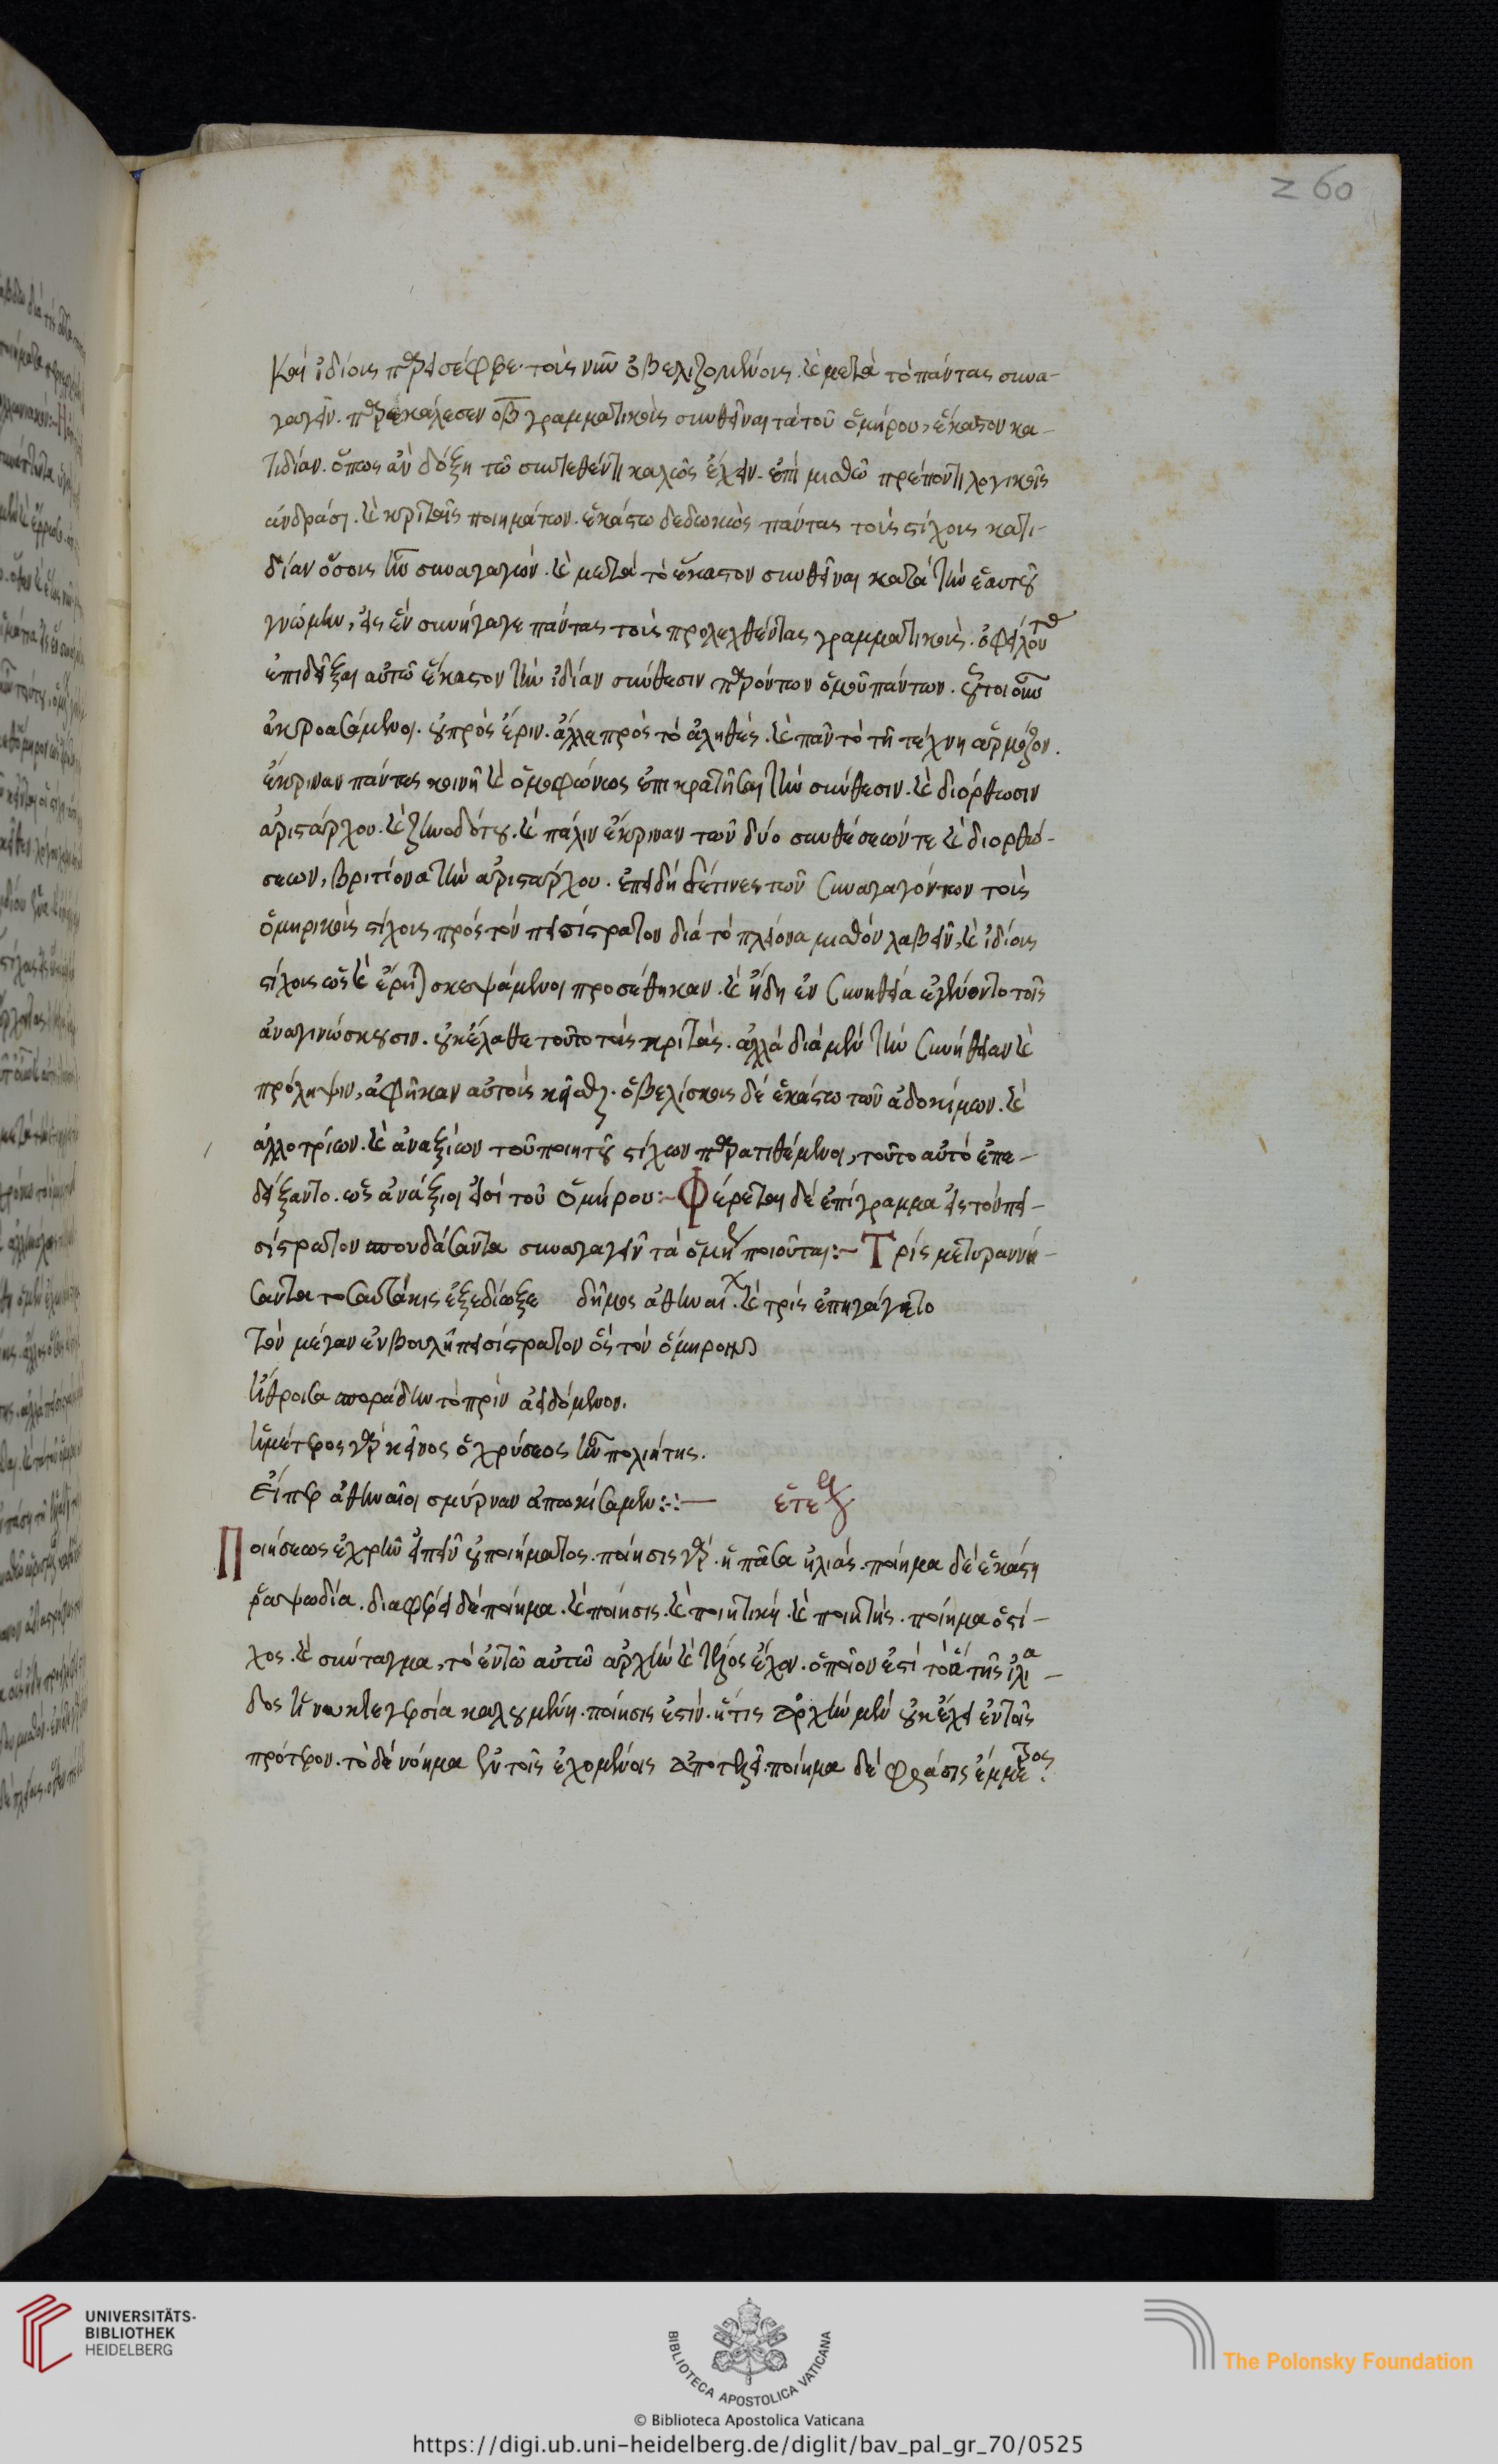 260
Καὶ ἰδίους παρεισέφρε. τοὺς νῦν ὀβελιζομένους. καὶ μετὰ τὸ πάντας συνα-
γαγεῖν. παρεκάλεσεν οβ γραμματικοὺς συνθεῖναι τὰ τοῦ ὁμήρου, ἕκαστον κα-
τιδίαν. ὅπως ἂν δόξη τῶ συντεθέντι καλῶς ἔχειν. ἐπὶ μισθῶ πρέποντι λογικοῖς
ἀνδράσι. καὶ κριταῖς ποιημάτων. ἑκάστω δεδωκὼς πάντας τοὺς στίχους κατι-
δίαν ὅσους ἦν συναγαγών. καὶ μετὰ τὸ ἕκαστον συνθεῖναι κατὰ τὴν ἑαυτοῦ
γνώμην, εἰς ἓν συνήγαγε πάντας τοὺς προλεχθέντας γραμματικούς. ὀφείλοντας
ἐπιδεῖξαι αὐτῶ ἕκαστον τὴν ἰδίαν σύνθεσιν παρόντων ὁμοῦ πάντων. οὗτοι οὖν
ἀκροασάμενοι. οὐ πρὸς ἔριν. ἀλλὰ πρὸς τὸ ἀληθές. καὶ πᾶν τὸ τῆ τέχνη ἁρμόζον.
ἔκριναν πάντες κοινῆ καὶ ὁμοφώνως ἐπικρατῆσαι τὴν σύνθεσιν. καὶ διόρθωσιν
ἀριστάρχου. καὶ ζηνοδότου. καὶ πάλιν ἔκριναν τῶν δύο συνθέσεών τε καὶ διορθώ-
σεων, βριτίονα τὴν ἀριστάρχου. ἐπειδὴ δέ τινες τῶν συναγαγόντων τοὺς
ὁμηρικοὺς στίχους πρὸς τὸν πεισίστρατον διὰ τὸ πλείονα μισθὸν λαβεῖν, καὶ ἰδίους
στίχους ὡς καὶ ἔρηται σκεψάμενοι προσέθηκαν. καὶ ἤδη ἐν συνηθεία ἐγένοντο τοῖς
ἀναγινώσκουσιν. οὐκ ἔλαθε τοῦτο τοὺς κριτάς. ἀλλὰ διὰ μὲν τὴν συνήθειαν καὶ
πρόληψιν, ἀφῆκαν αὐτοὺς κεῖσθαι. ὀβελίσκους δὲ ἑκάστω τῶν ἀδοκίμων. καὶ
ἀλλοτρίων. καὶ ἀναξίων τοῦ ποιητοῦ στίχων παρατιθέμενοι, τοῦτο αὐτὸ ἐπε-
δείξαντο. ὡς ἀνάξιοι εἰσὶ τοῦ ὁμήρου:- Φέρεται δὲ ἐπίγραμμα εἰς τὸν πει-
σίστρατον σπουδάσαντα συναγαγεῖν τὰ ὁμήρου ποιοῦται:- Τρίς με τυραννή-
σαντα τοσαυτάκις ἐξεδίωξε δῆμος ἀθηναίων. καὶ τρὶς ἐπηγάγετο
Τὸν μέγαν ἐν βουλῆ πεισίστρατον ὃς τὸν ὅμηρον
ἤθροισα σποράδην τὸ πρὶν ἀειδόμενον.
ἡμέτερος γὰρ κεῖνος ὁ χρύσεος ἦν πολιήτης.
Εἴπερ ἀθηναῖοι σμύρναν ἀπωκίσαμεν:·:— ἕτεραι
Ποιήσεως ἐχρῆν εἰπεῖν οὐ ποιήματος. ποίησις γὰρ. ἡ πᾶσα ἠλιάς. ποίημα δὲ ἑκάστη
ῥαψωδία. διαφέρει δὲ ποίημα. καὶ ποίησις. καὶ ποιητική. καὶ ποιητής. ποίημα ὁ στί-
χος. καὶ σύνταγμα, τὸ ἐν τῶ αὐτῶ ἀρχὴν καὶ τέλος ἔχον. ὁποῖον ἐστὶ τὸ α τῆς ἰλιά-
δος ἢ νυκτεγερσία καλουμένη. ποίησις ἐστὶν. ἥτις ἀρχὴν μὲν οὐκ ἔχει ἐν τοῖς
πρότερον. τὸ δὲ νόημα ἐν τοῖς ἐχομένοις ἀποτελεῖ. ποίημα δὲ φράσις ἔμμετρος.
UNIVERSITÄTS-
BIBLIOTHEK
HEIDELBERG
BIBLIOTECA APOSTOLICA VATICANA
The Polonsky Foundation
© Biblioteca Apostolica Vaticana
https://digi.ub.uni-heidelberg.de/diglit/bav_pal_gr_70/0525